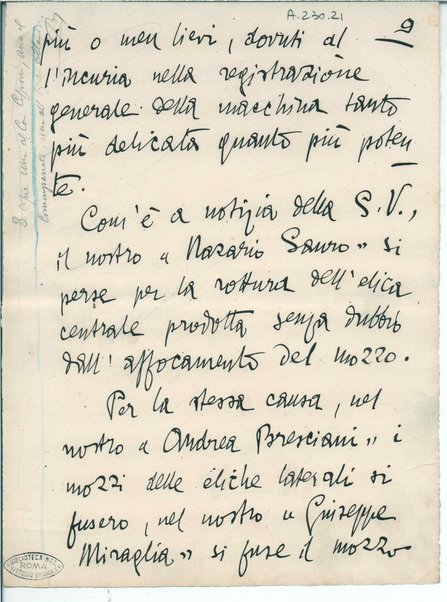 A.230.21
9
più o men lievi, dovuti al
l'incuria nella registrazione
generale della macchina tanto
più delicata quanto più poten
te.
Com'è a notizia della S.V.,
il nostro « Nazario Sauro » si
perse per la rottura dell'elica
centrale prodotta senza dubbio
dall'affocamento del mozzo.
Per la stessa causa, nel
nostro « Andrea Bresciani » i
mozzi delle eliche laterali si
fusero, nel nostro « Giuseppe
Miraglia » si fuse il mozzo
BIBLIOTECA NAZ.
ROMA
VITTORIO EMANUELE